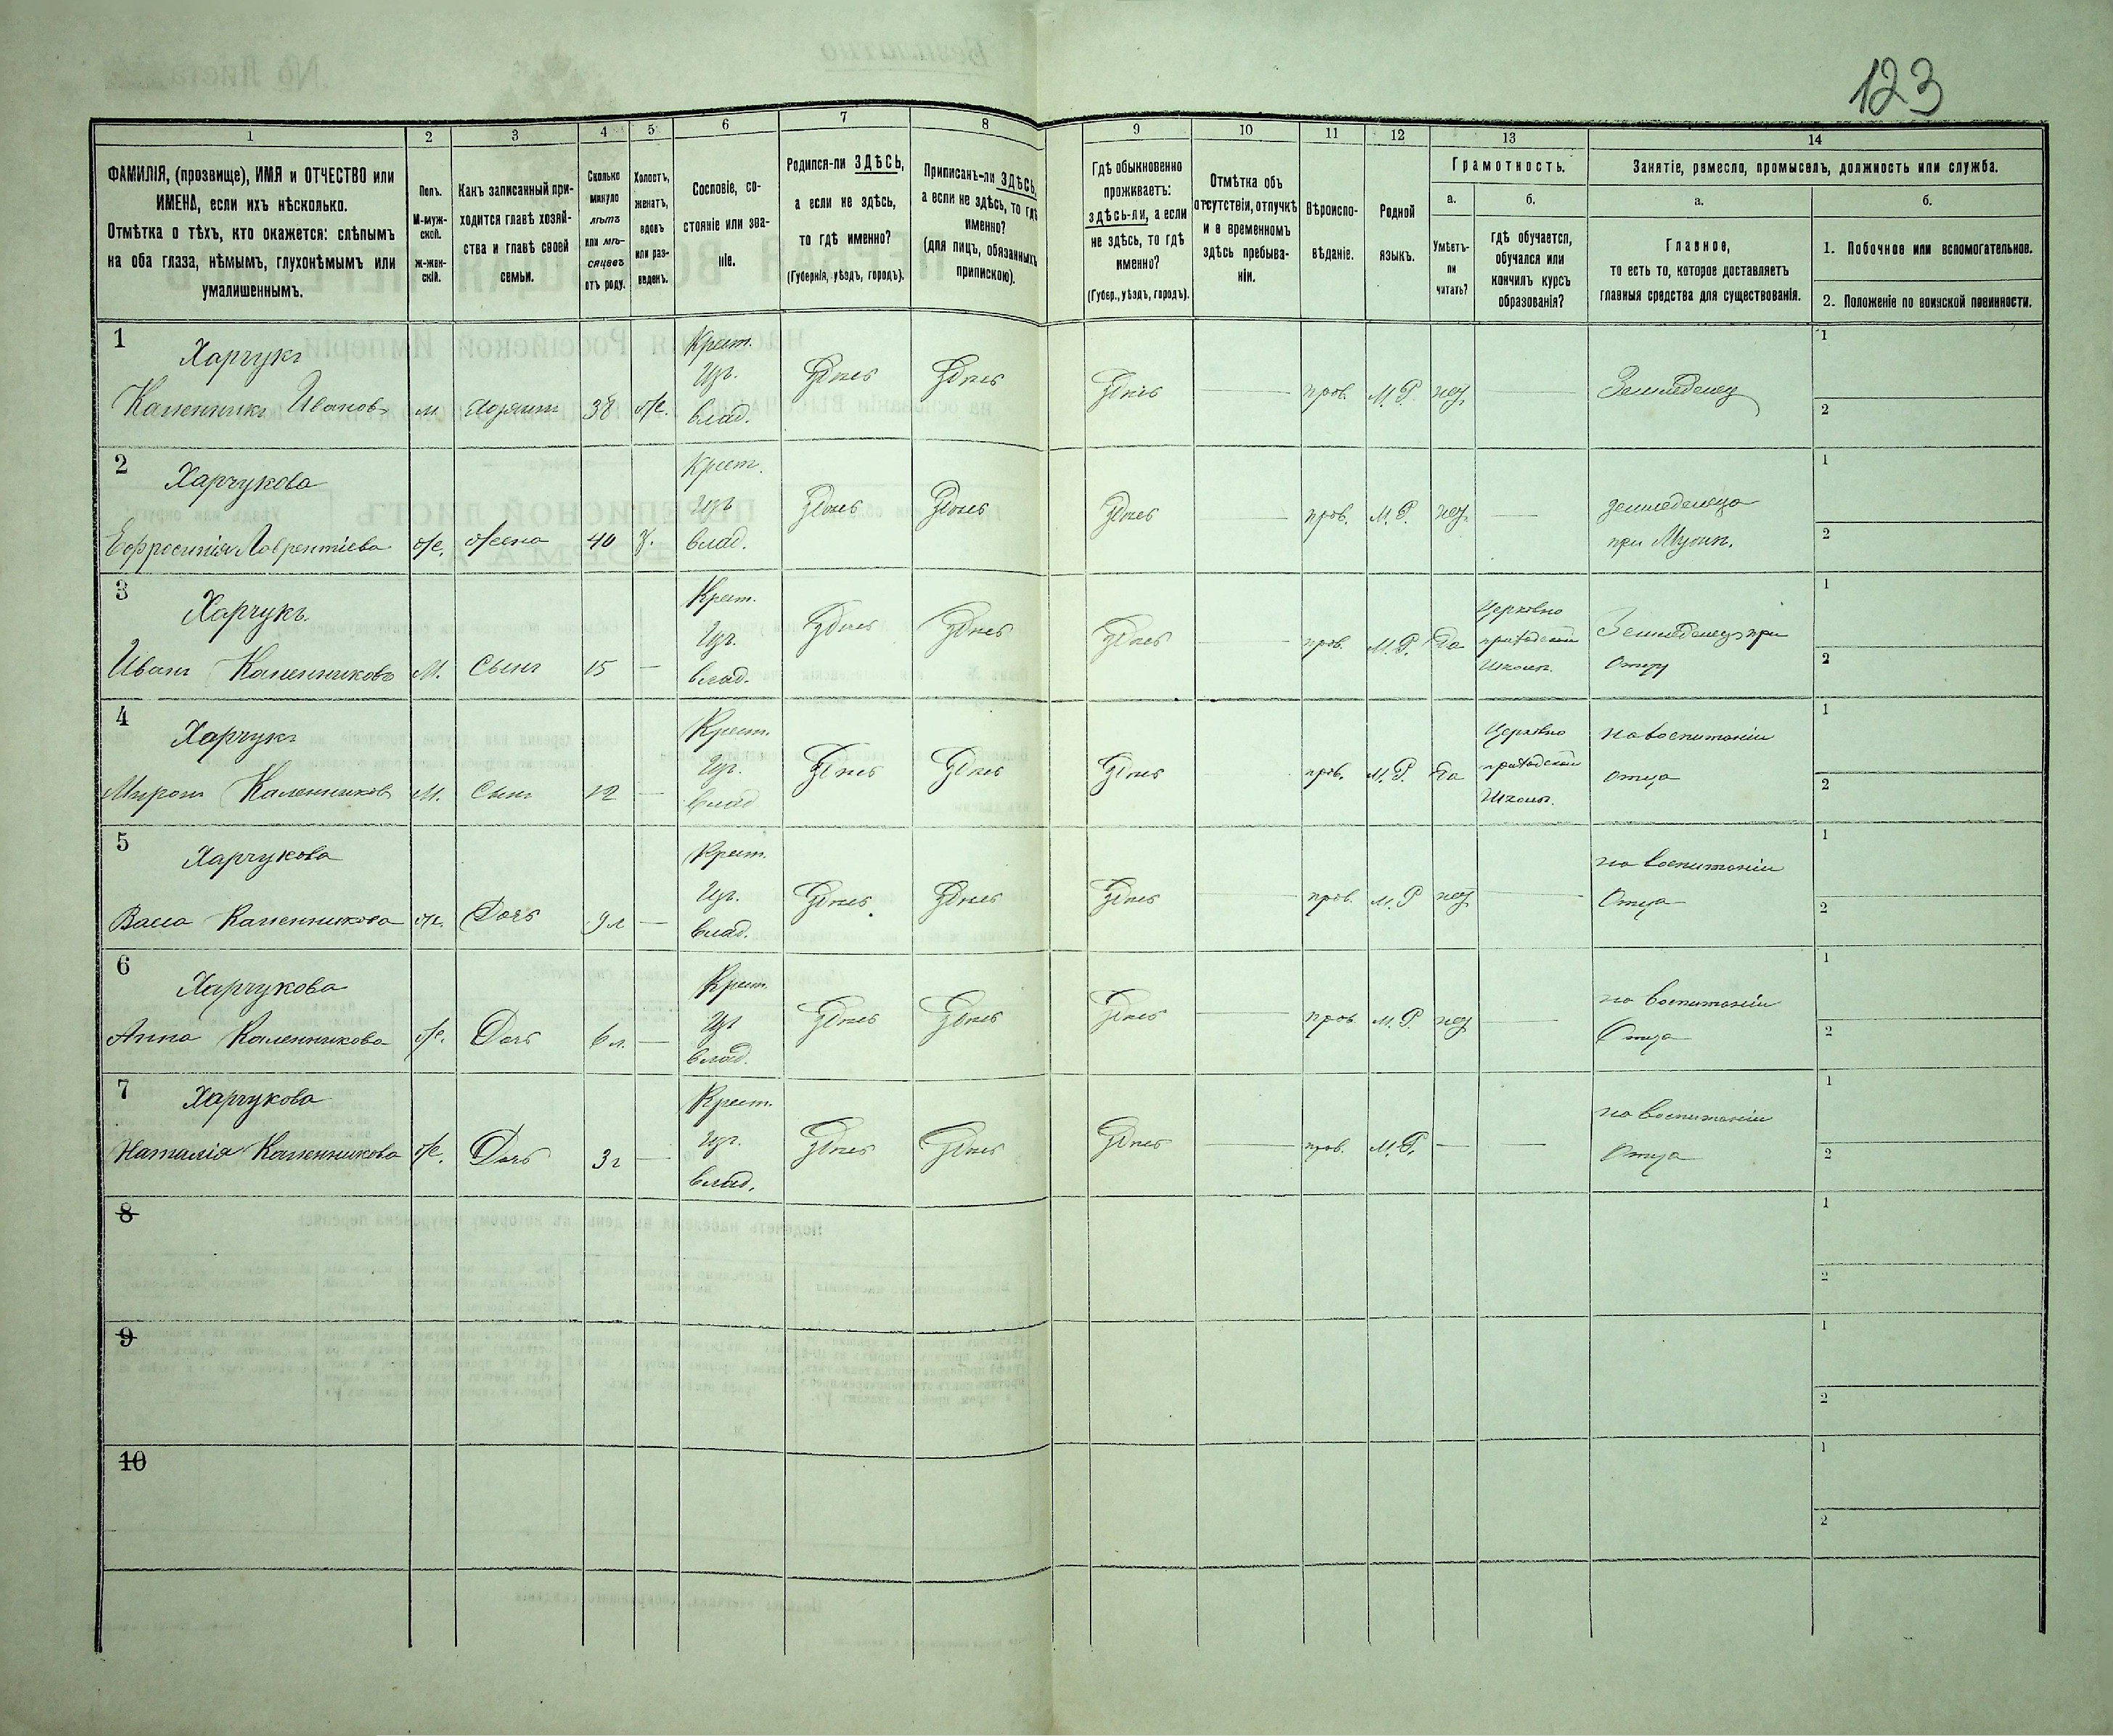 123
1 2 3 4 5 6 7 8 9 10 11 12 13 14
ФАМИЛІЯ, (прозвище), ИМЯ и ОТЧЕСТВО или
ИМЕНА, если ихъ нѣсколько.
Отмѣтка о тѣхъ, кто окажется: слѣпымъ
на оба глаза, нѣмымъ, глухонѣмымъ или
умалишеннымъ.
Полъ.
М-муж-
ской.
ж-жен-
скій.
Какъ записанный при-
ходится главѣ хозяй-
ства и главѣ своей
семьи.
Сколько
минуло
лѣтъ
или мѣ-
сяцевъ
отъ роду.
Холостъ,
женатъ,
вдовъ
или раз-
веденъ.
Сословіе, со-
стояніе или зва-
ніе.
Родился-ли ЗДѢСЬ,
а если не здѣсь,
то гдѣ именно?
(Губернія, уѣздъ, городъ).
Приписанъ-ли ЗДѢСЬ,
а если не здѣсь, то гдѣ
именно?
(для лицъ, обязанныхъ
припискою).
Гдѣ обыкновенно
проживаетъ:
здѣсь-ли, а если
не здѣсь, то гдѣ
именно?
(Губер., уѣздъ, городъ).
Отмѣтка объ
отсутствіи, отлучкѣ
и о временномъ
здѣсь пребыва-
ніи.
Вѣроиспо-
вѣданіе.
Родной
языкъ.
Грамотность.
а.
Умѣетъ-
ли
читать?
б.
гдѣ обучается,
обучался или
кончилъ курсъ
образованія?
Занятіе, ремесло, промыселъ, должность или служба.
а.
Главное,
то есть то, которое доставляетъ
главныя средства для существованія.
б.
1. Побочное или вспомогательное.
2. Положеніе по воинской повинности.
1
Харчукъ
Каленникъ Ивановъ м Хозяинъ 38 ж. Крест. изъ влад. Здѣсь Здѣсь Здѣсь — прав. М.Р. нѣт — Земледелец
1
2
2
Харчукова
Ефросинія Лаврентіева ж. жена 40 з. Крест. изъ влад. Здѣсь Здѣсь Здѣсь — прав. М.Р. нѣт — земледельца
при Мужи.
1
2
3
Харчукъ.
Иванъ Каленниковъ М. Сынъ 15 — Крест. Изъ. влад. Здѣсь Здѣсь Здѣсь — прав. М.Р. Да Церковно
приходской
Школы.
Земледелецъ при
Отцу
1
2
4
Харчукъ
Миронъ Каленниковъ М. Сынъ 12 — Крест. Изъ. влад Здѣсь Здѣсь Здѣсь прав. М.Р. Да Церковно
приходской
Школы.
на воспитаніи
отца
1
2
5
Харчукова
Васса Каленникова ж. Дочь 9 л — Крест. Изъ. влад. Здѣсь Здѣсь Здѣсь — прав. М.Р нѣт — на воспитаніи
Отца
1
2
6
Харчукова
Анна Каленникова ж. Дочь 6 л. — Крест. Изъ влад. Здѣсь Здѣсь Здѣсь — прав М.Р. нѣт — на воспитаніи
Отца
1
2
7
Харчукова
Наталія Каленникова ж. Дочь 3 г — Крест. изъ. влад. Здѣсь Здѣсь Здѣсь — прав. М.Р. — — на воспитаніи
Отца
1
2
8
1
2
9
1
2
10
1
2